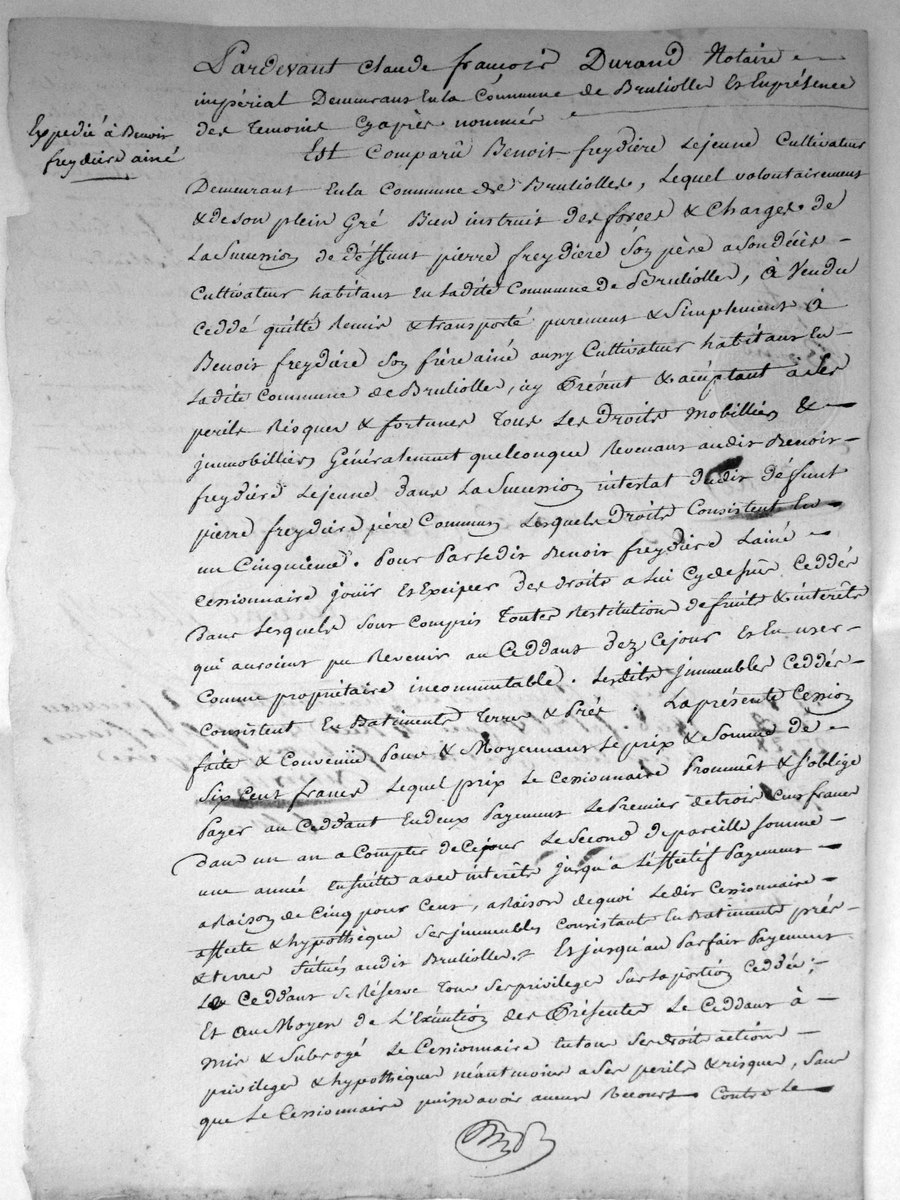 Pardevant Claude françois Durand Notaire
impérial Demeurans En la Commune de Brulliolle Et En présence
des temoins Cy après nommés
Expedié à Benoit
freydiere ainé
Est Comparû Benoit freydière Lejeune Cultivateur
Demeurant En la Commune de Brulliolles, Lequel volontairement
& de son plein Gré Bien instruit des forces & Charges de
La Succession de déffunt pierre freydiere Son père a son décès
Cultivateur habitant En Ladite Commune de Brulliolles, à Vendu
Ceddé quitté Remis & transporté purement & Simplement à
Benoit freydiere Son frère ainé aussy Cultivateur habitans En
Ladite Commune de Brulliolles, icy Présent & acceptant à Ses
perils Risques & fortunes Tous Les Droits Mobilliers &
jmmobilliers Généralement quelconque Revenans audit Benoit
freydiere Lejeune dans La Succession intestat dudit déffunt
pierre freydiere père Commun, Lesquels Droits Consistent En
un Cinquieme. Pour Par Ledit Benoit freydiere Lainé
Cessionnaire jouir Et Exciper des droits a Lui Cy dessûs Ceddés
Dans Lesquels Sont Compris Toutes Restitution de fruits & interêts
qui auroient pu Revenir au Ceddant Dez Cejour Et En user
Comme propriétaire incommutable. Lesdits jmmeubles Ceddés
Consistent En Batiments Terres & Prés. La présente Cession
faite & Convenüe Pour & Moyennans Le prix & Somme de
Six Cent francs Lequel prix Le Cessionnaire Prommêt & S'oblige
Payer au Ceddant En deux Payement Le Premier de trois Cens francs
dans un an a Compter de Cejour Le Second de pareille Somme
une année Ensuitte avec interêts jusqu'a L'effectif Payement
a Raison de Cinq pour Cent, a Raison de quoi Ledit Cessionnaire
affecte & hypothèque Ses jmmeubles Consistant En Batiments prés
& terres Situés audit Brulliolles. Et jusqu'au Parfait Payement
Le Ceddant Se Réserve tous Ses privileges Sur La portion Ceddée;
Et au Moyen de L'Exécution des Présentes Le Ceddant à
Mis & Subrogé Le Cessionnaire En tous Ses droits action
privileges & hypothèques néantmoins a Ses perils & risques, Sans
que Le Cessionnaire puisse avoir aucun Recours Contre Le